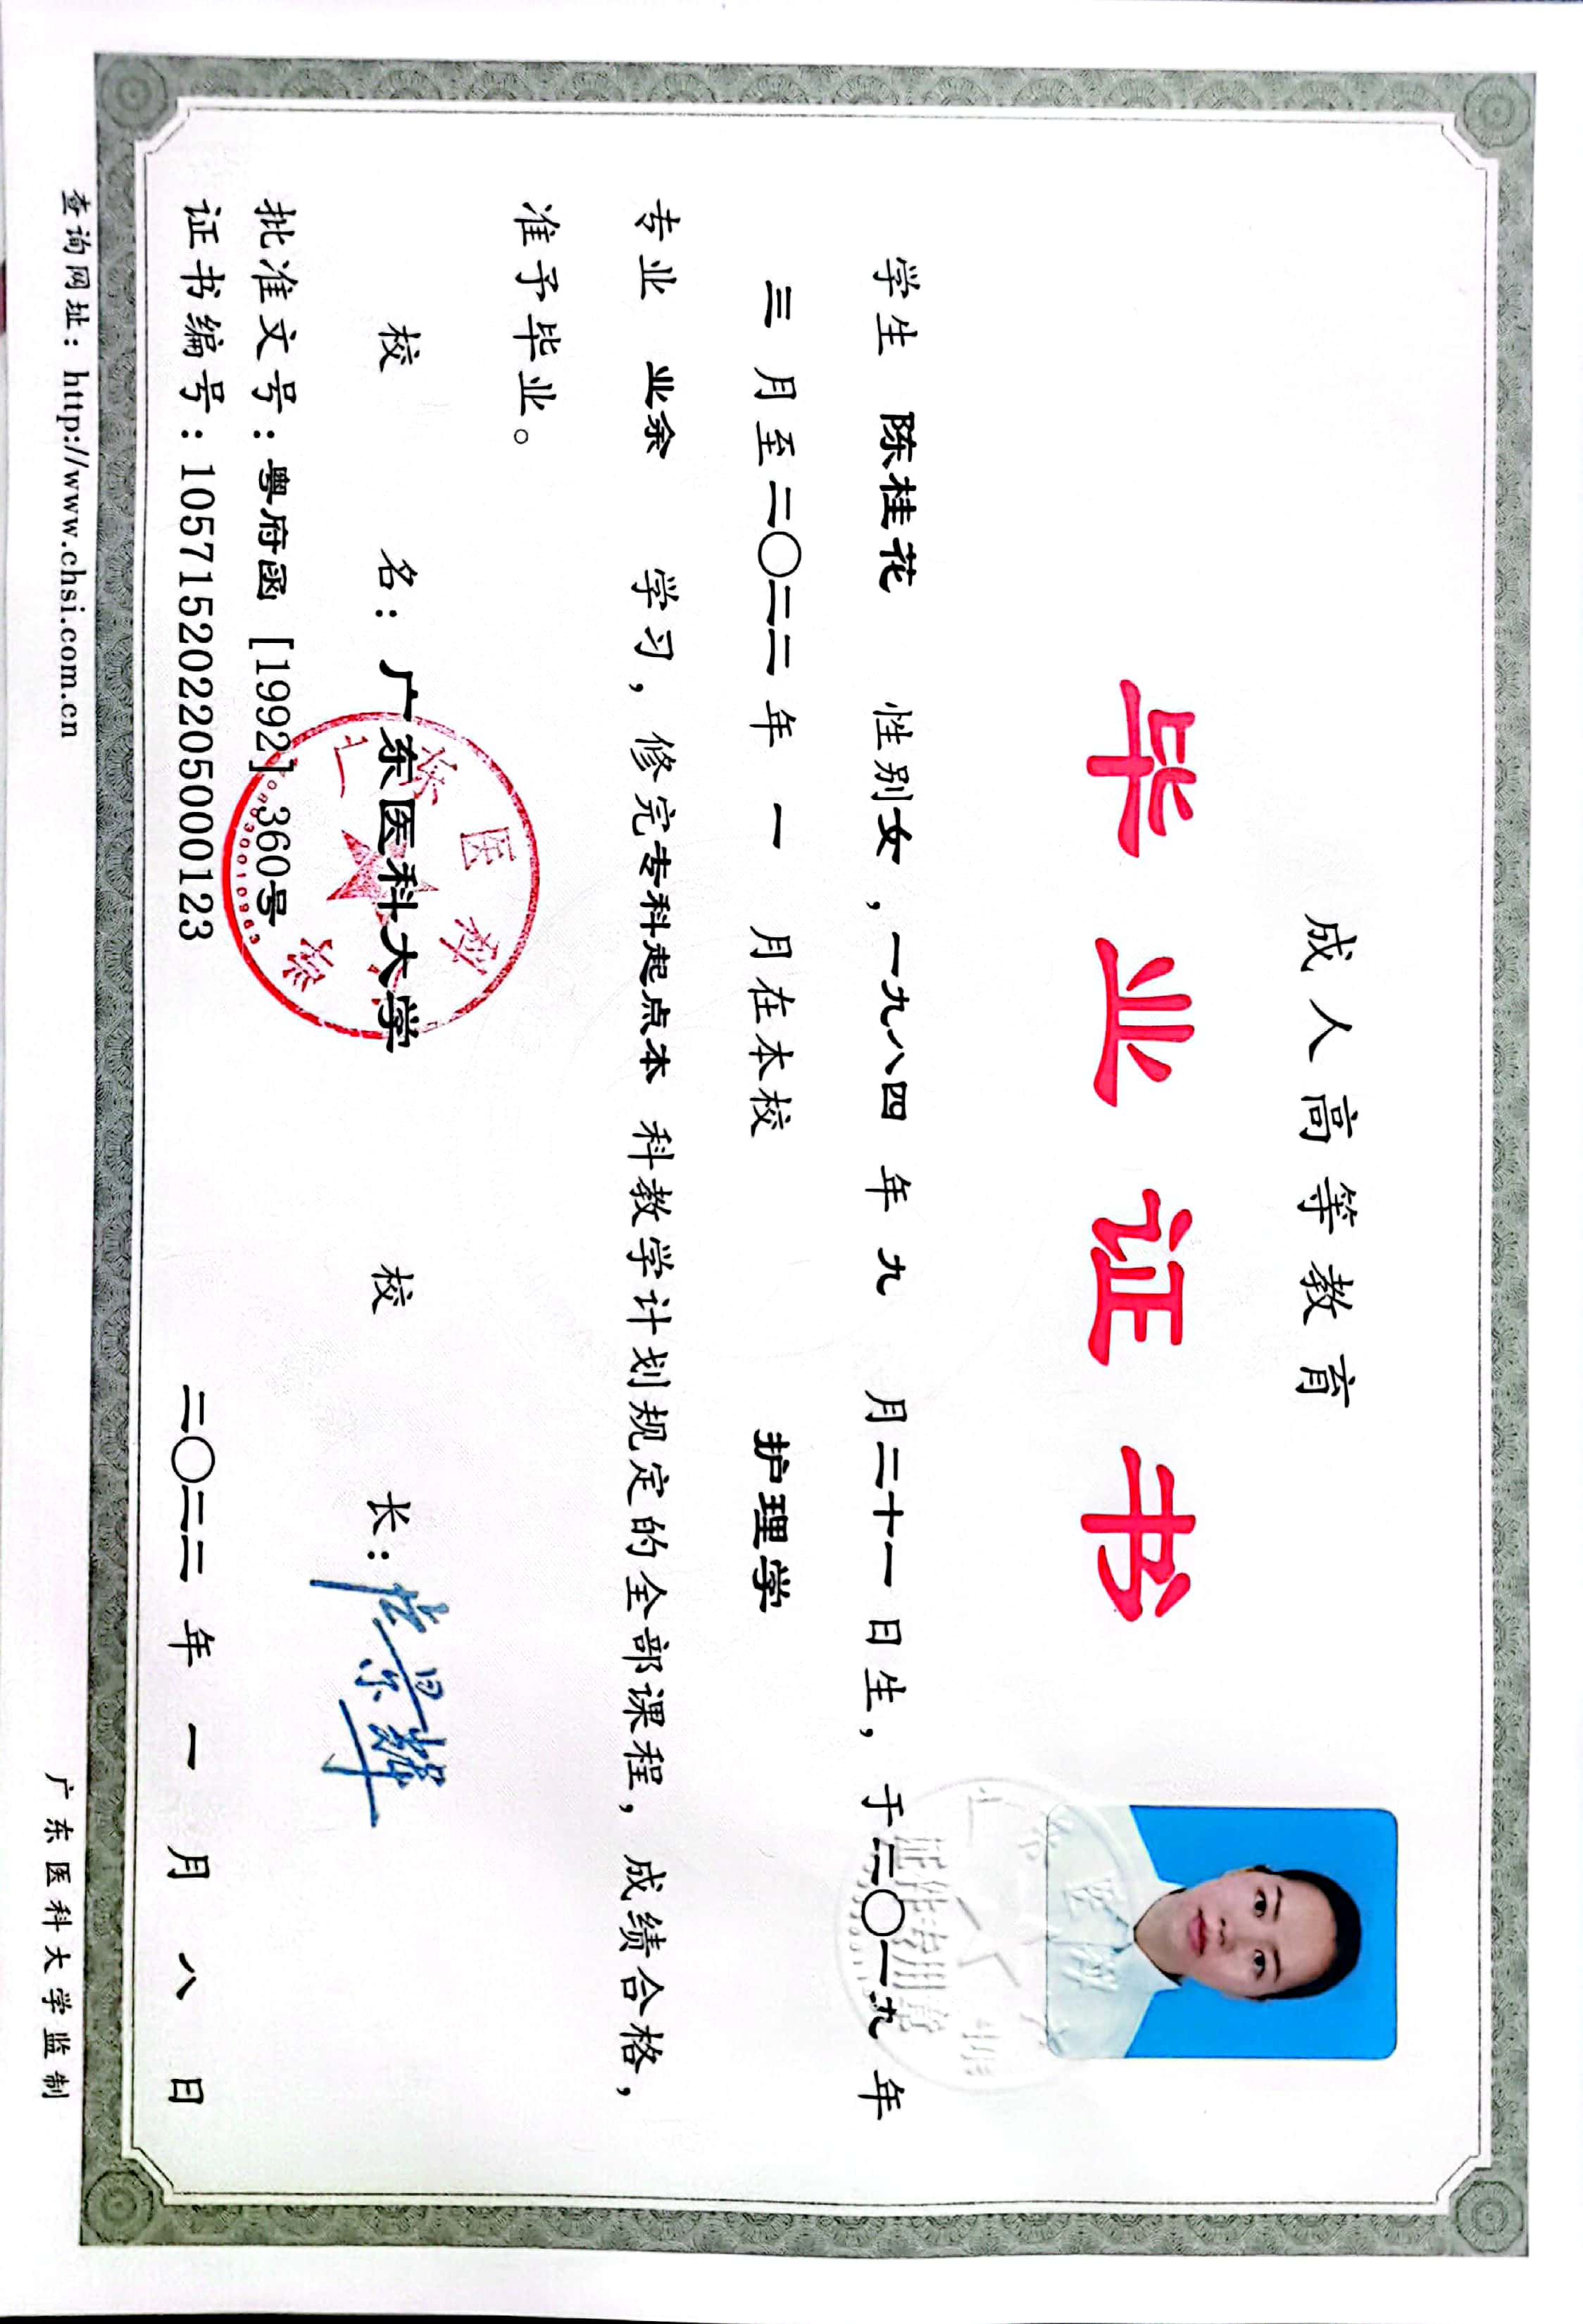 成人高等教育
毕业证书
学生 陈桂花 性别女，一九八四 年 九 月二十一日生，于二〇一九 年
三 月至二〇二二 年 一 月在本校 护理学
专业 业余 学习，修完专科起点本 科教学计划规定的全部课程，成绩合格，
准予毕业。
校 名：广东医科大学 校 长：
批准文号：粤府函 [1992] 360号
证书编号：105715202205000123 二〇二二 年 一 月 八 日
查询网址：http://www.chsi.com.cn 广东医科大学监制